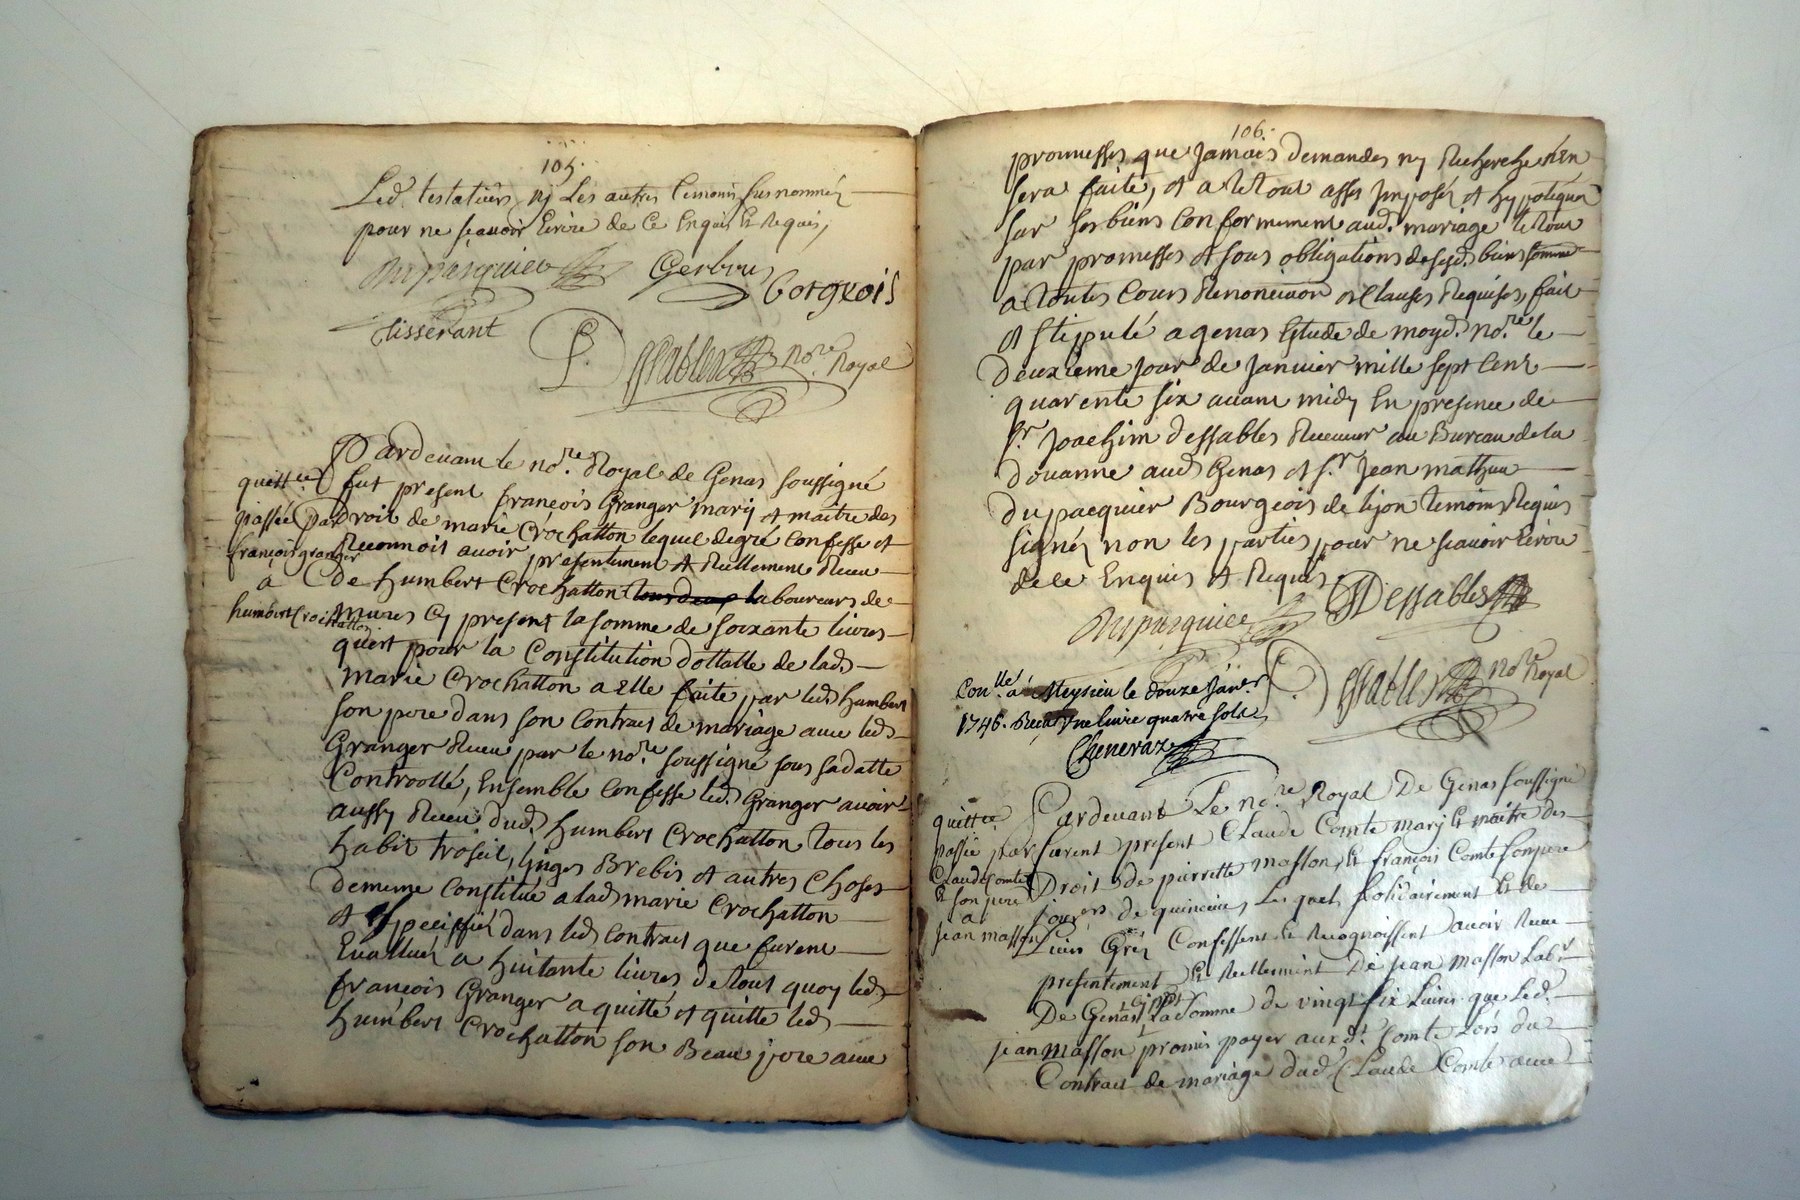 105.
Led. testateur ny Les autres temoins susnommés
pour ne sçavoir Ecrire de Ce Enquis Et Requis,
Dupasquier Gerbou Borgeois
tisserant
Dessables no.re Royal
Pardevant le no.re Royal de Genas soussigné
fut present françois Granger mary et maitre des
Droit de marie Crochatton lequel degré Confesse et
Reconnoit avoir presentement et Reellement Receu
de humbert Crochatton laboureurs de
mures Cy present la somme de soixante livres
quest pour la Constitution dottalle de lad.
marie Crochatton a Elle faite par led. humbert
son pere dans son Contrat de mariage avec led.
Granger Receu par le no.re soussigné sous sa datte
Controollé, Ensemble Confesse led. Granger avoir
aussy Receu dud. humbert Crochatton tous les
habit trosseil, linges Brebis et autres Choses
dememe Constitué a lad. marie Crochatton
et specifiés dans led. Contrat que furent
Evallués a huitante livres de tout quoy led.
françois Granger a quitté et quitte led.
humbert Crochatton son Beau pere avec
quittce
passée par
françois granger
a
humbert Crochatton
106.
promesses que Jamais demandes ny Recherche n'En
sera faite, et a le tout asses Imposés et hypotequer
sur ses biens Conformement aud. mariage le tout
par promesses et sous obligations de sesd. biens
a toutes Cours Renonciation et Clauses Requises, fait
et stipulé a genas Etude de moyd. no.re le
deuxieme jour de Janvier mille sept Cent
quarente six avant midy En presence de
sr. Joachim dessables Receveur au Bureau de la
douanne aud. Genas et sr. Jean mathieu
dupacquier Bourgeois de lyon temoins Requis
signés non les parties pour ne scavoir Ecrire
de Ce Enquis et Requis
Dupasquier Dessables
Dessables no.re Royal
Con.llé a Meysieu le douze Janv.er
1746. Reçu Une livre quatre sols
Cheneraz
Pardevant Le no.re Royal De Genas soussigné
furent present Claude Comte mary Et maitre des
Droit de pierrette masson, Et françois Comte son pere
de quincieu, Lesquels solidairement Et de
Leurs Grés Confessent Et Recognoissent avoir Receu
presentement Et Reellement De jean masson Lab.r
De Genas Cy pnt La somme de vingt six Livres que Led.
jean masson promis payer auxd. Comte Lors du
Contrat de mariage dud. Claude Comte avec
quittce
passée par
Claude Comte
Et son pere
a
jean masson